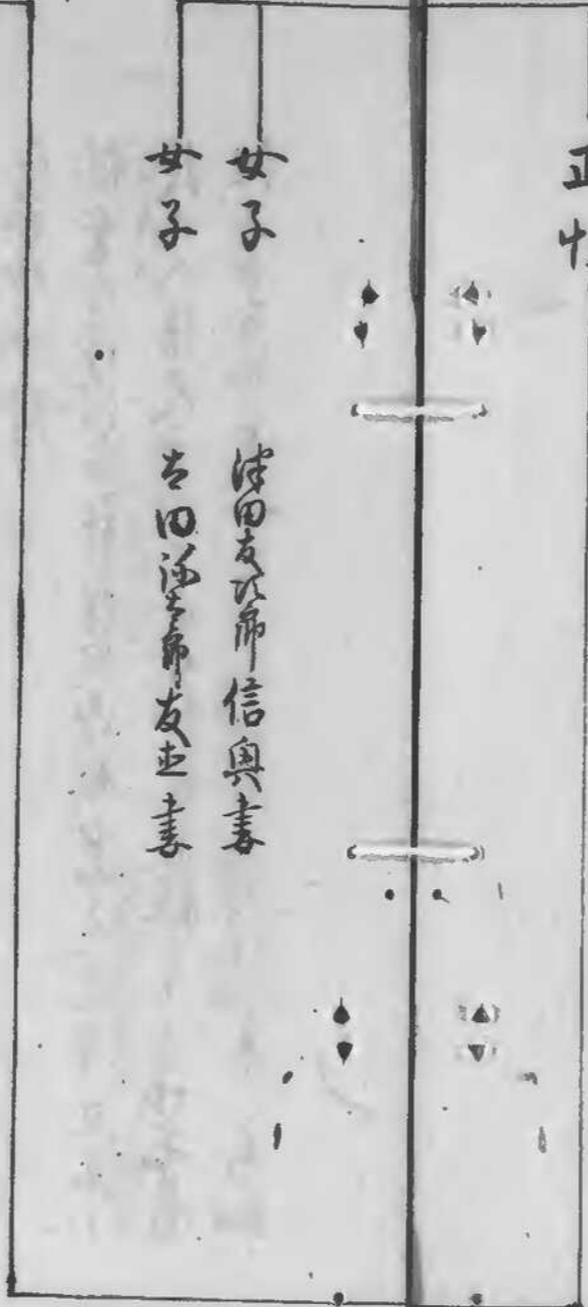 正
女子 津田友次郎信興妻
女子 吉田弥五郎友直妻